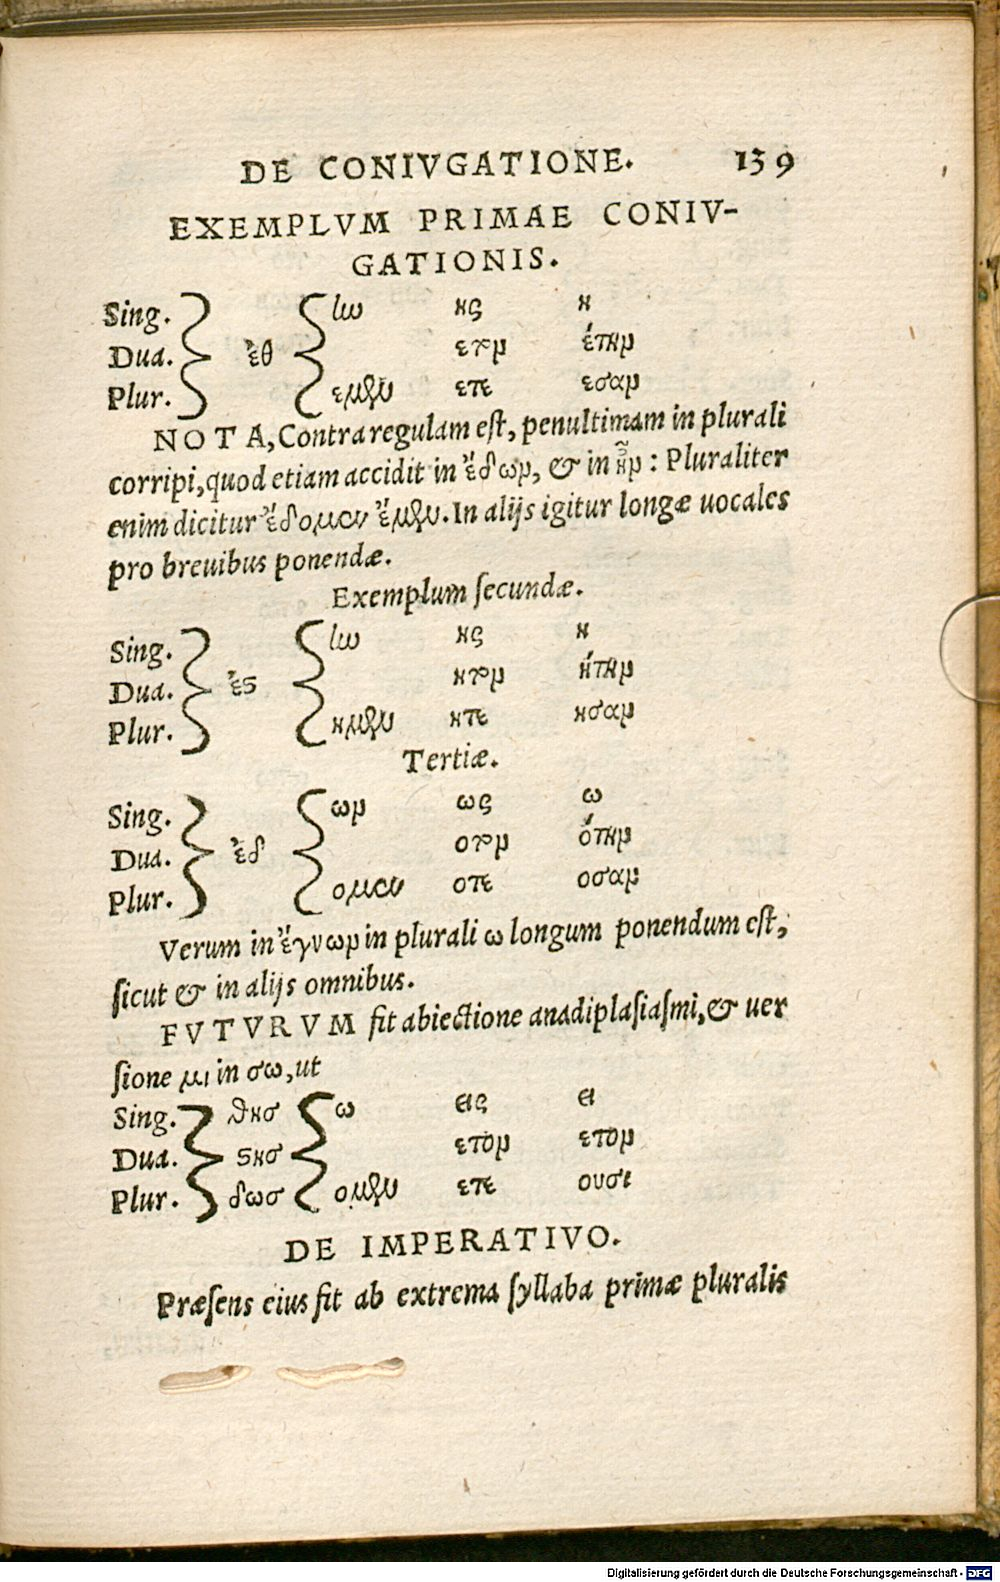 DE CONIVGATIONE. 139
EXEMPLVM PRIMAE CONIV-
GATIONIS.
Sing. ἐθ ης η
Dua. ετον έτην
Plur. εμεν ετε εσαν
NOTA, Contra regulam est, penultimam in plurali
corripi, quod etiam accidit in ἔδων, & in ἦν : Pluraliter
enim dicitur ἔδομεν ἔμεν. In alijs igitur longæ uocales
pro breuibus ponendæ.
Exemplum secundæ.
Sing. ἐϛ ης η
Dua. ητον ήτην
Plur. ημεν ητε ησαν
Tertiæ.
Sing. ἐδ ων ως ω
Dua. οτον ότην
Plur. ομεν οτε οσαν
Verum in ἔγνων in plurali ω longum ponendum est,
sicut & in alijs omnibus.
FVTVRVM fit abiectione anadiplasiasmi, & uer
sione μι in σω, ut
Sing. θησ ω εις ει
Dua. ϛησ ετον ετον
Plur. δωσ ομεν ετε ουσι
DE IMPERATIVO.
Præsens eius fit ab extrema syllaba primæ pluralis
Digitalisierung gefördert durch die Deutsche Forschungsgemeinschaft - DFG